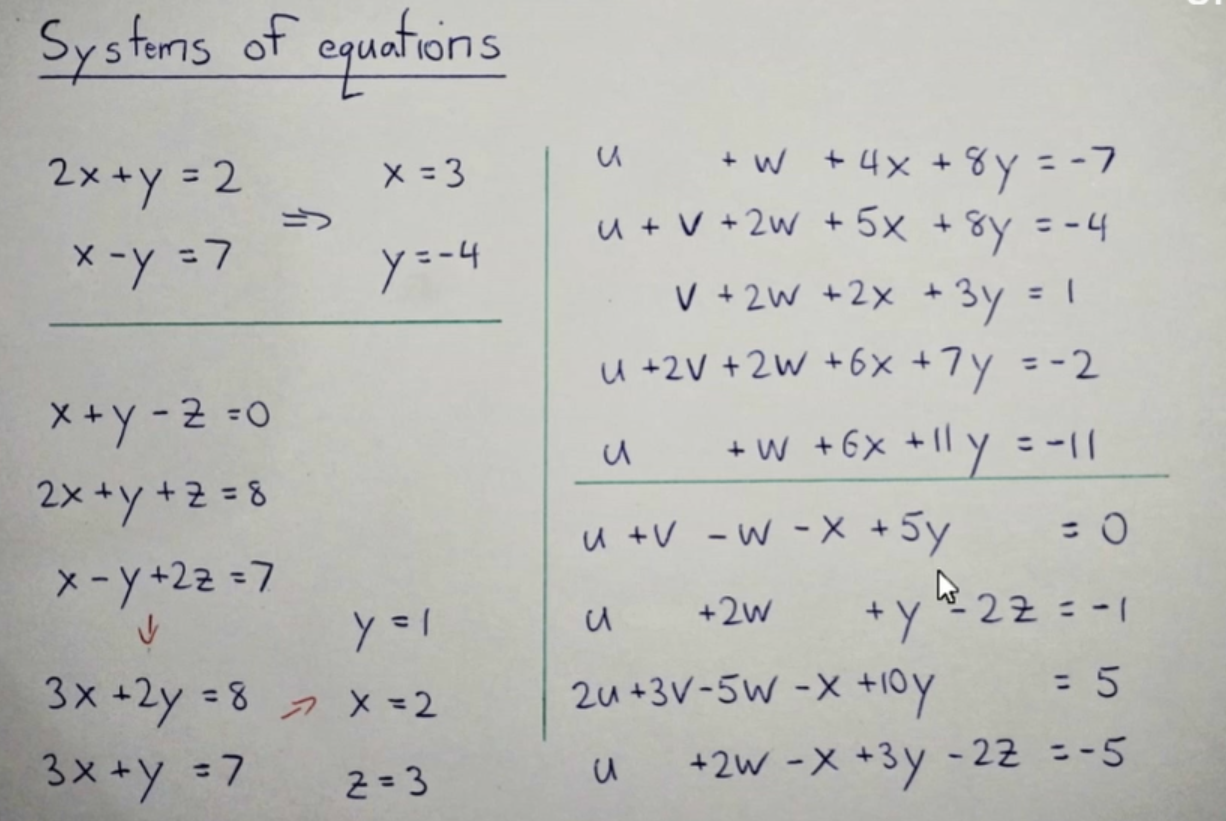 Systems of equations
2x + y = 2
x - y = 7
⇒
x = 3
y = -4
x + y - z = 0
2x + y + z = 8
x - y + 2z = 7
↓
3x + 2y = 8
3x + y = 7
⇒
y = 1
x = 2
z = 3
u + w + 4x + 8y = -7
u + v + 2w + 5x + 8y = -4
v + 2w + 2x + 3y = 1
u + 2v + 2w + 6x + 7y = -2
u + w + 6x + 11y = -11
u + v - w - x + 5y = 0
u + 2w + y - 2z = -1
2u + 3v - 5w - x + 10y = 5
u + 2w - x + 3y - 2z = -5